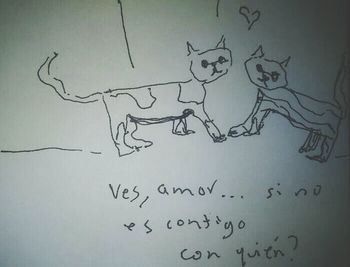 Ves, amor... si no
es contigo
con quién?